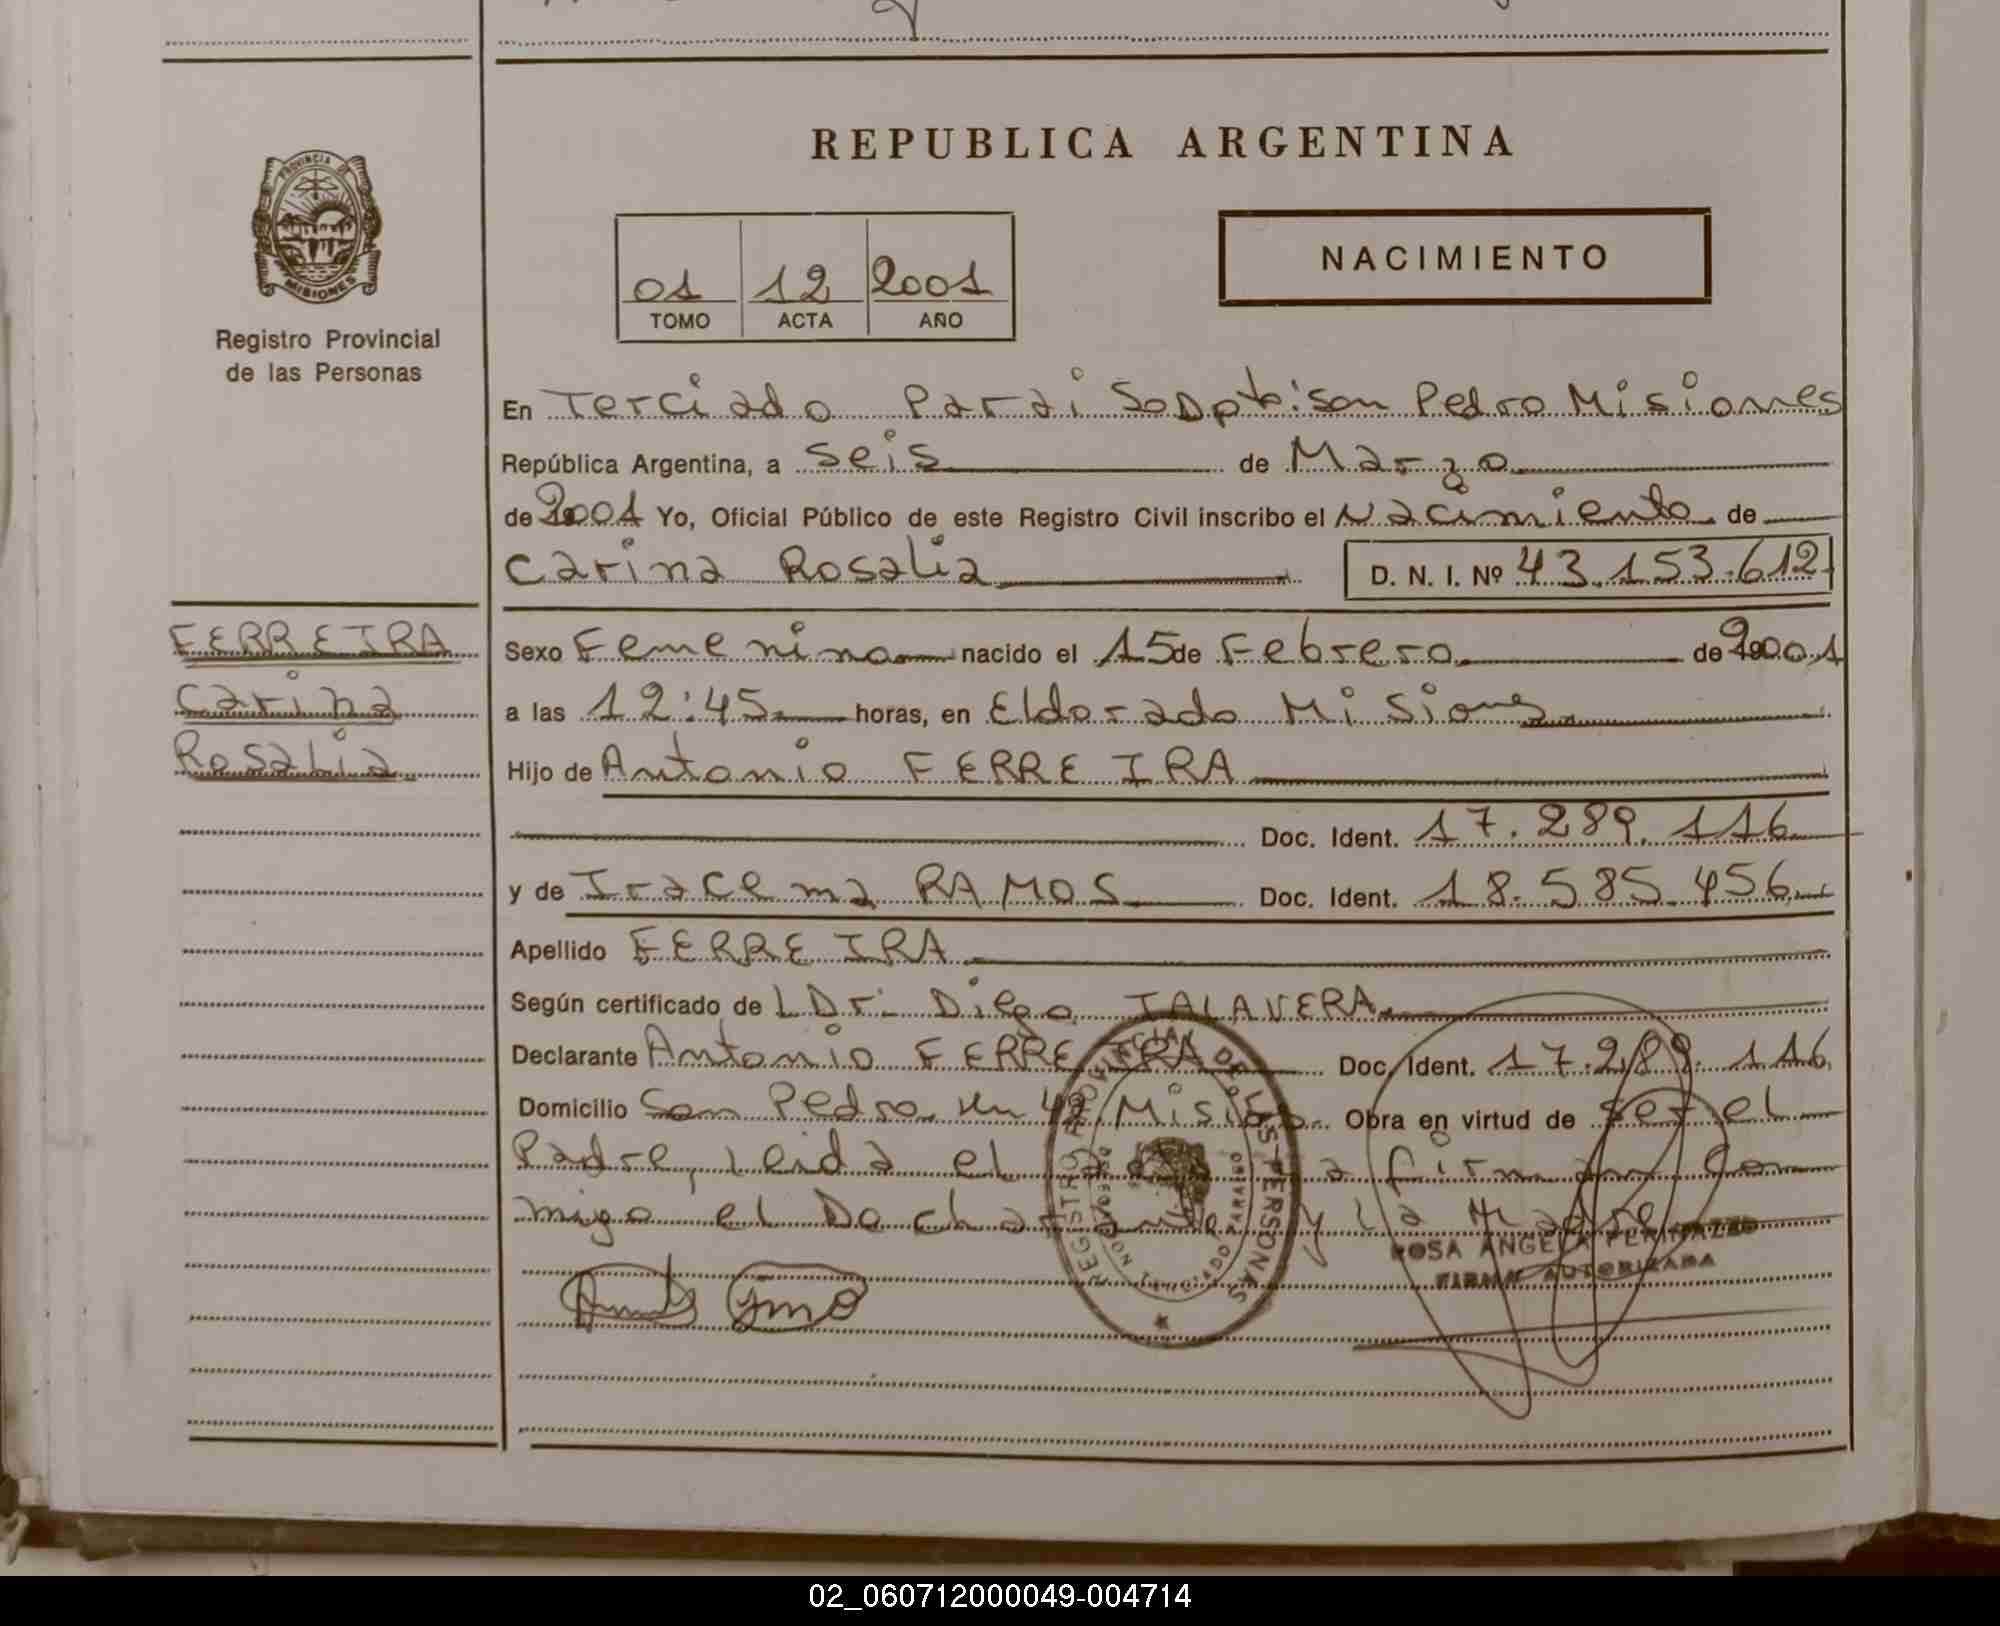 REPUBLICA ARGENTINA
PROVINCIA DE
MISIONES
Registro Provincial
de las Personas
01 12 2001
TOMO ACTA AÑO
NACIMIENTO
En Terciado Paraiso Dpto: San Pedro Misiones
República Argentina, a seis de Marzo
de 2001 Yo, Oficial Público de este Registro Civil inscribo el Nacimiento de
Carina Rosalia D. N. I. Nº 43.153.612
FERREIRA
Carina
Rosalia
Sexo Femenino nacido el 15 de Febrero de 2001
a las 12:45 horas, en Eldorado Misiones
Hijo de Antonio FERREIRA
Doc. Ident. 17.289.116
y de Iracema RAMOS Doc. Ident. 18.585.456
Apellido FERREIRA
Según certificado de L Dr. Diego TALAVERA
Declarante Antonio FERREIRA Doc. Ident. 17.289.116
Domicilio San Pedro km 42 Obra en virtud de ser el
Padre, Leida el acta la firman Con
migo el y la Madre
REGISTRO PROVINCIAL DE LAS PERSONAS
TERCIADO PARAISO
ROSA ANGELA
FIRMA AUTORIZADA
02_060712000049-004714